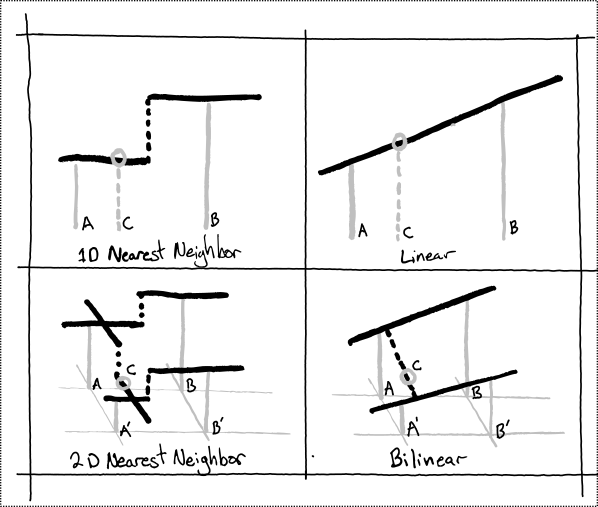 A C B
1D Nearest Neighbor
A C B
Linear
C
A B
A' B'
2D Nearest Neighbor
C
A B
A' B'
Bilinear